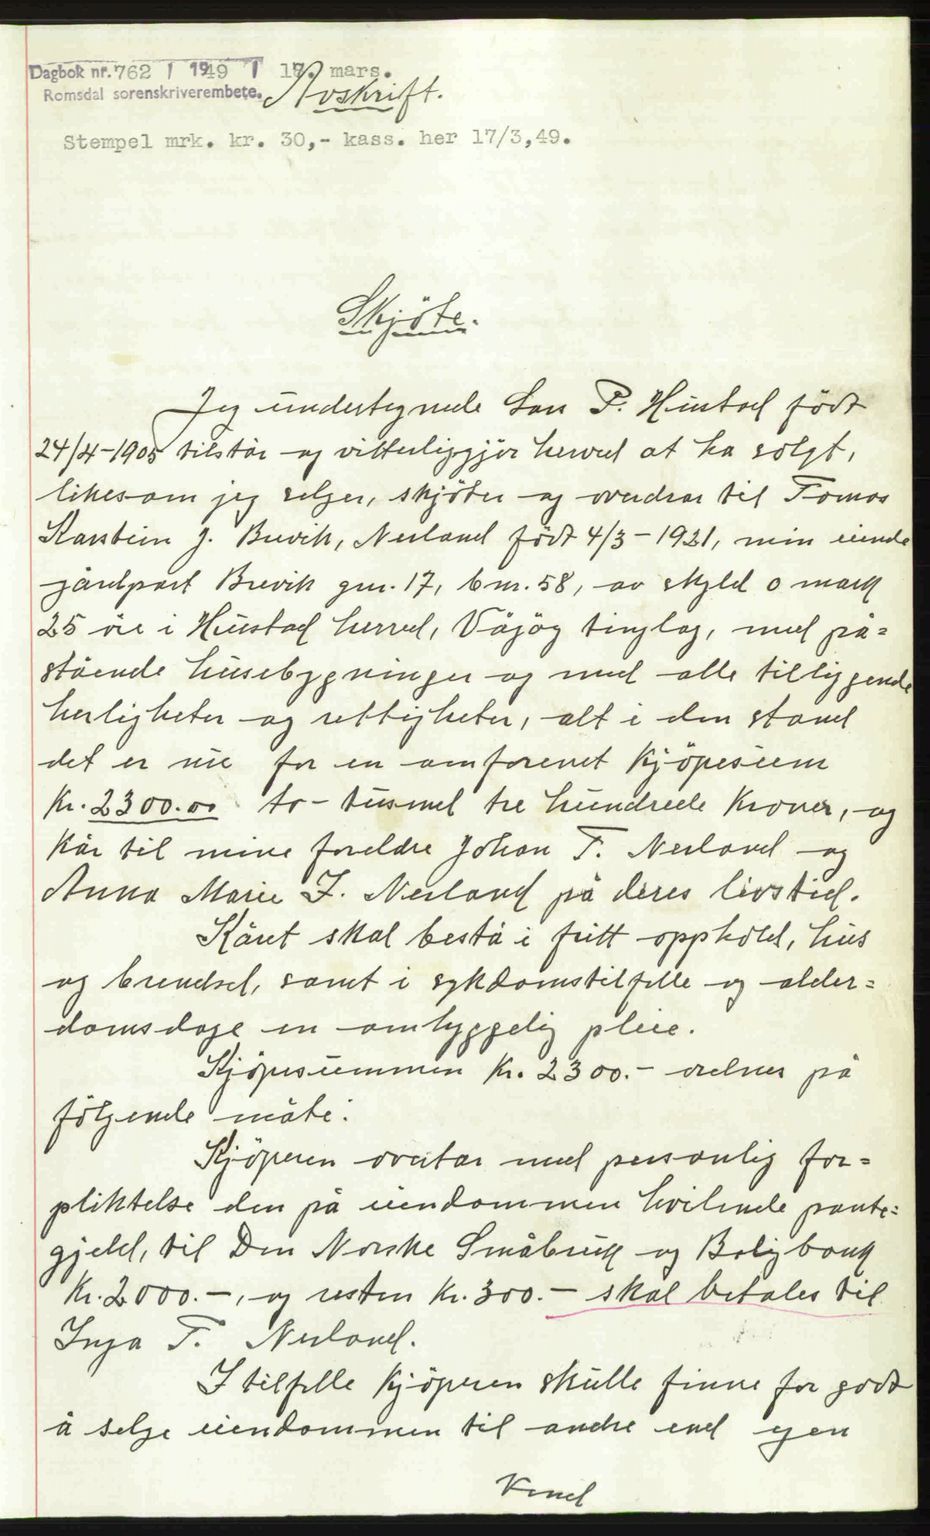 Dagbok nr. 762 / 1949 / 17. mars.
Romsdal sorenskriverembete.
Avskrift.
Stempel mrk. kr. 30,- kass. her 17/3,49.
Skjöte.
Jeg undertegnede Lars P. Hustad födt
24/4-1905 tilstår og vitterliggjör herved at ha solgt,
likesom jeg selger, skjöter og overdrar til Tomas
Karstein J. Brevik, Nerland födt 4/3-1921, min eiende
gårdpart Brevik gnr. 17, bnr. 58, av skyld 0 mark
25 öre i Hustad herred, Vågöy tinglag, med på=
stående husebygninger og med alle tilliggende
herligheter og rettigheter, alt i den stand
det er nu for en omforenet kjöpesum
kr. 2300.00 to-tusend tre hundrede kroner, og
kår til mine foreldre Johan T. Nerland og
Anna Marie J. Nerland på deres livstid.
Kåret skal bestå i fritt opphold, hus
og brendsel, samt i sykdomstilfelle og alder=
domsdage en omhyggelig pleie.
Kjöpesummen kr. 2300.- ordnes på
fölgende måte:
Kjöperen overtar med personlig for=
pliktelse den på eiendommen hvilende pante=
gjeld, til Den Norske Småbruk og Boligbank
kr. 2000.-, og resten kr. 300.- skal betales til
Inga T. Nerland.
I tilfelle kjöperen skulle finne for godt
å selge eiendommen til andre end egen
Vend